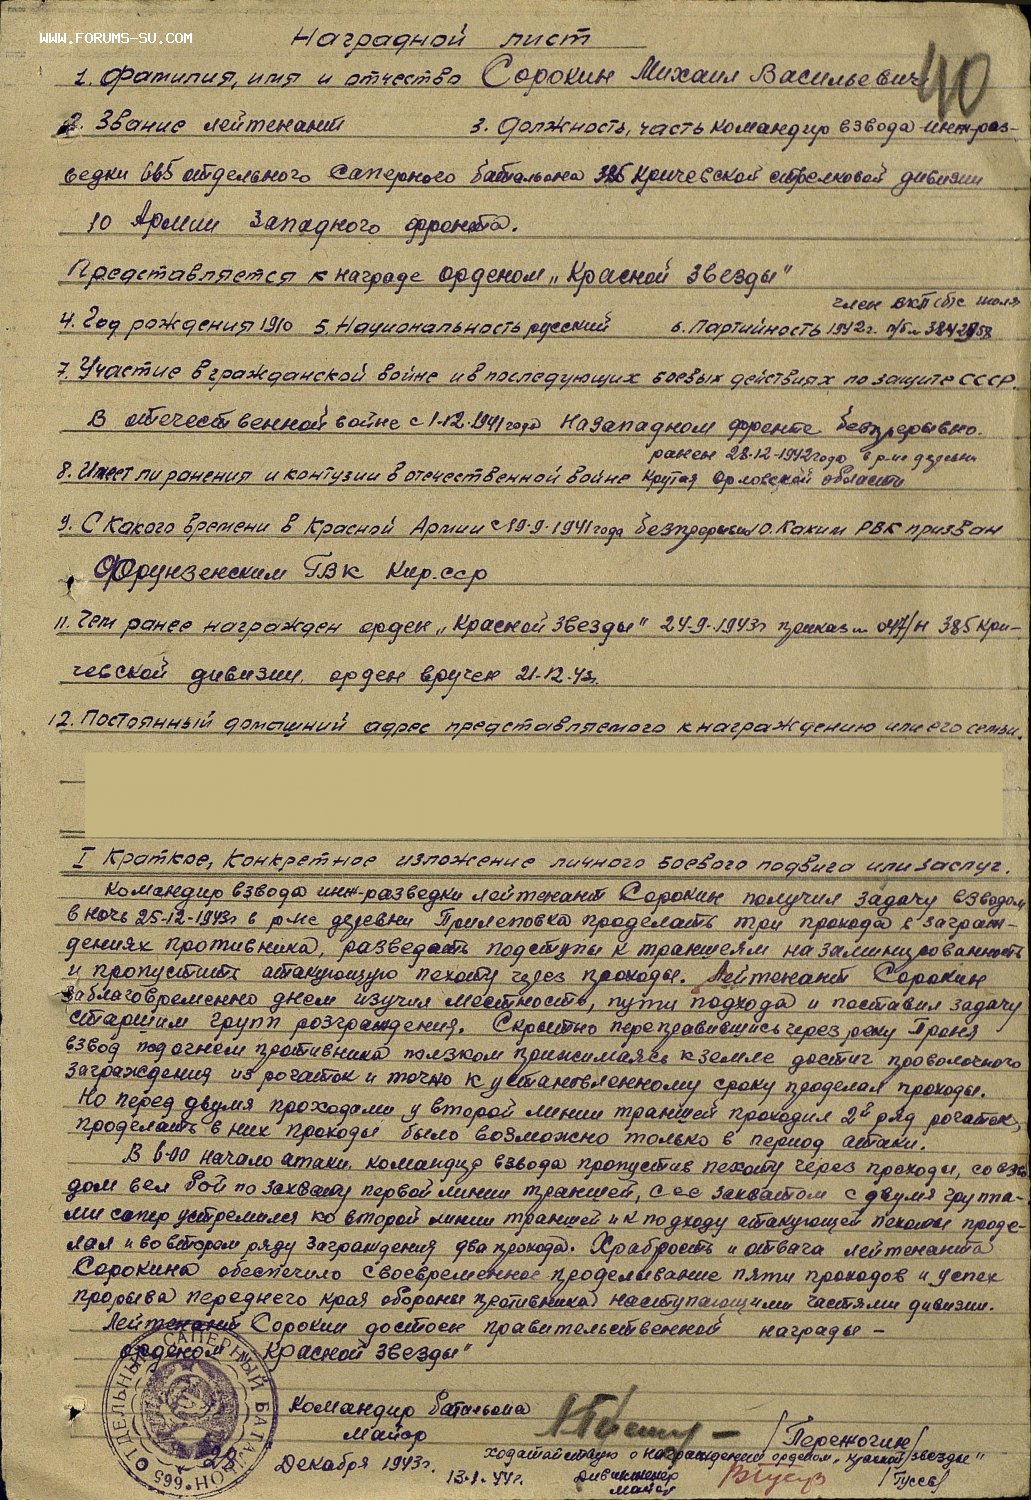 WWW.FORUMS-SU.COM
Наградной лист
40
1. Фамилия, имя и отчество Сорокин Михаил Васильевич
2. Звание лейтенант 3. Должность, часть командир взвода инж-раз-
ведки 665 отдельного саперного батальона 385 Кричевской стрелковой дивизии
10 Армии Западного фронта.
Представляется к награде орденом „Красной Звезды"
член ВКП(б) с июля
4. Год рождения 1910 5. Национальность русский 6. Партийность 1942г. п/б №
7. Участие в гражданской войне и в последующих боевых действиях по защите СССР.
В отечественной войне с 1-12-1941 года на западном фронте беспрерывно.
ранен 28-12-1942 года в р-не деревни
8. Имеет ли ранения и контузии в отечественной войне Крутая Орловской области
9. С какого времени в Красной Армии с 19-9-1941 года беспрерывно 10. Каким РВК призван
Фрунзенским ГВК Кир.ССР
11. Чем ранее награжден орден „Красной Звезды" 24-9-1943г приказ № 047/н 385 Кри-
чевской дивизии. орден вручен 21-12-43г.
12. Постоянный домашний адрес представляемого к награждению или его семьи.
I Краткое, конкретное изложение личного боевого подвига или заслуг.
Командир взвода инж-разведки лейтенант Сорокин получил задачу взводом
в ночь 25-12-1943г в р-не деревни Прилеповка проделать три прохода в заграж-
дениях противника, разведать подступы к траншеям на заминированность
и пропустить атакующую пехоту через проходы. Лейтенант Сорокин
заблаговременно днем изучил местность, пути подхода и поставил задачу
старшим групп розграждения. Скрытно переправившись через реку Проня
взвод под огнем противника ползком прижимаясь к земле достиг проволочного
заграждения из рогаток и точно к установленному сроку проделал проходы.
Но перед двумя проходами у второй линии траншей проходил 2й ряд рогаток,
проделать в них проходы было возможно только в период атаки.
В 6-00 начало атаки. командир взвода пропустив пехоту через проходы, со взво
дом вел бой по захвату первой линии траншей, с ее захватом с двумя группа-
ми сапер устремился ко второй линии траншей и к подходу атакующей пехоты проде-
лал и во втором ряду заграждения два прохода. Храбрость и отвага лейтенанта
Сорокина обеспечило своевременное проделывание пяти проходов и успех
прорыва переднего края обороны противника наступающими частями дивизии.
Лейтенант Сорокин достоен правительственной награды -
орденом „Красной Звезды"
ОТДЕЛЬНЫЙ САПЕРНЫЙ БАТАЛЬОН 665
Командир батальона
майор /Пережогин/
28 Декабря 1943г.
Ходатайствую о награждении орденом „Красной Звезды"
13.1.44г. Дивинженер
майор /Гусев/